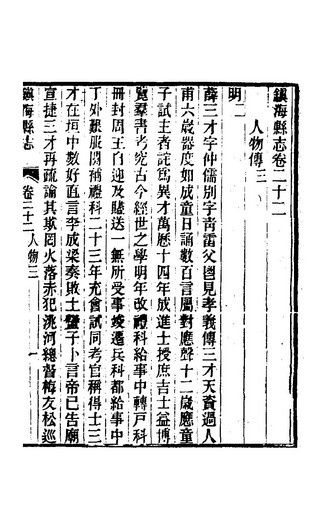 鎮海縣志卷二十二
人物傳三
明二
薛三才字仲儒別字青雷父圂見孝義傳三才天資過人
甫六歲器度如成童日誦數百言屬對應聲十二歲應童
子試主者詫爲異才萬歷十四年成進士授庶吉士益博
覽羣書考究古今經世之學明年改禮科給事中轉戸科
冊封周王自迎及贐送一無所受事竣遷兵科都給事中
丁外艱服闋補禮科二十三年充會試同考官稱得士三
才在垣中數好直言李成梁奏敗土蠻子卜言帝已告廟
宣捷三才再疏論其欺罔火落赤犯洮河總督梅友松巡
鎮海縣志 卷二十二 人物三